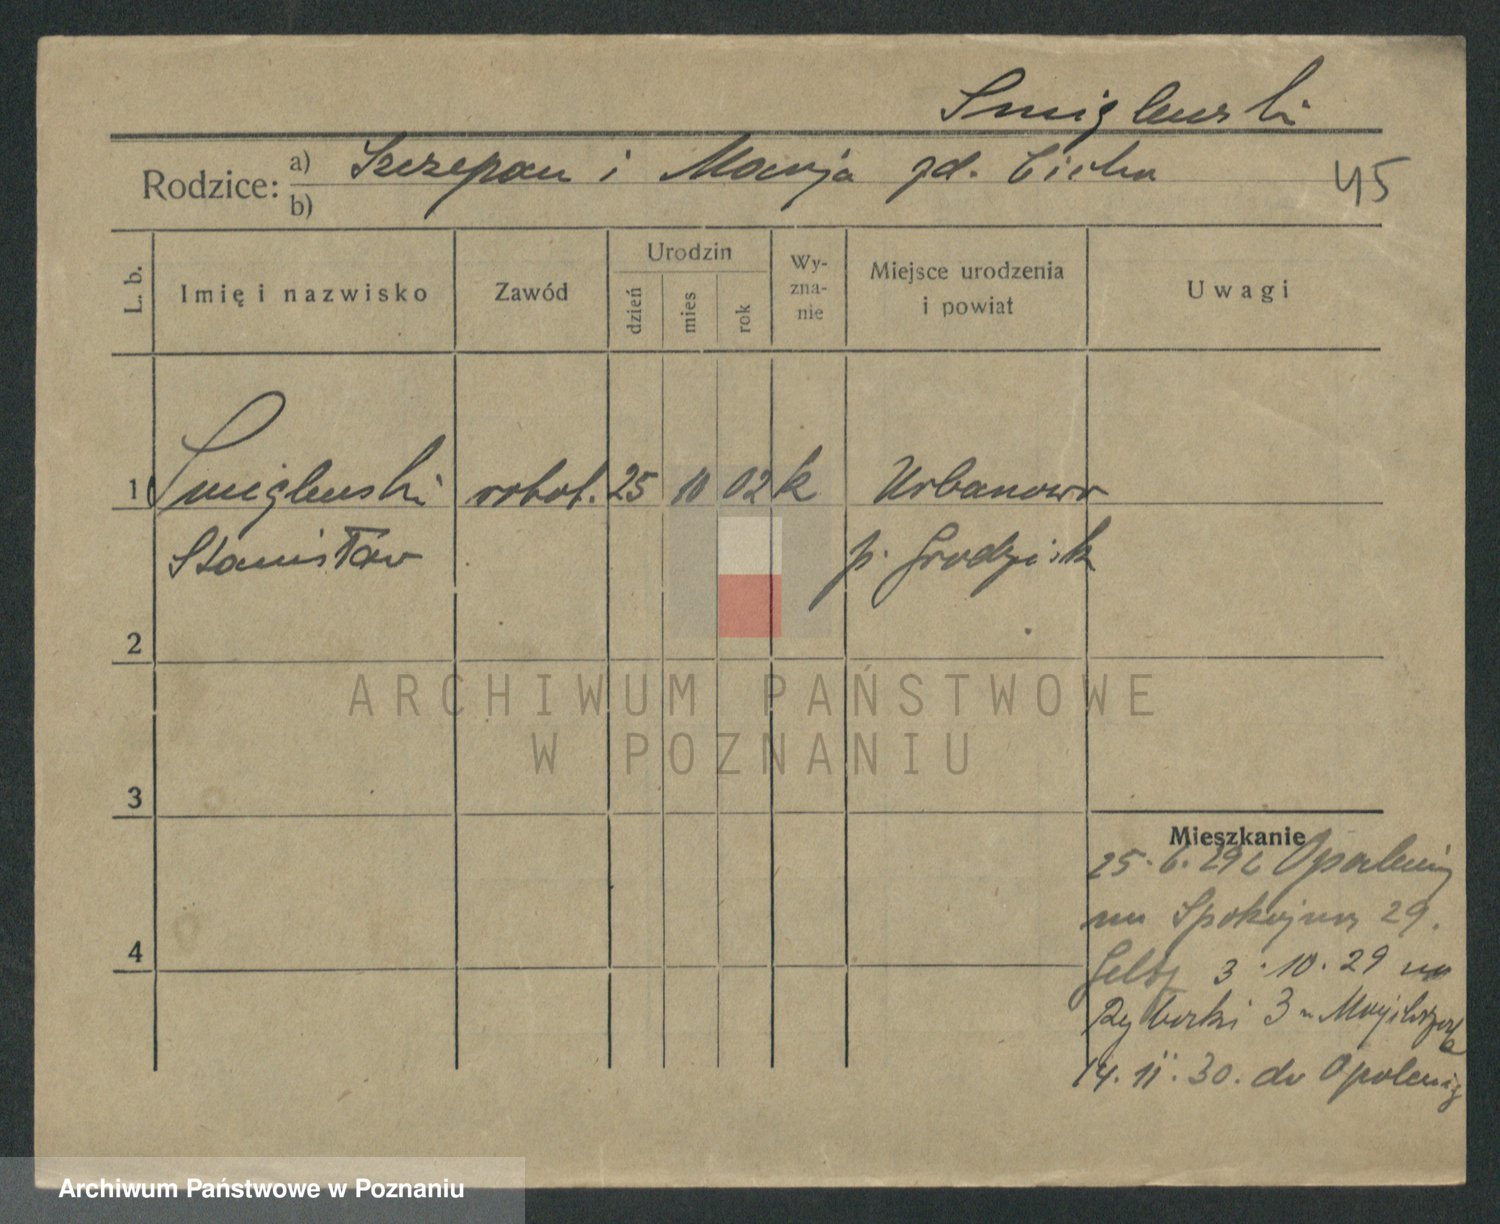 Śmiglewski
Rodzice: a) Szczepan i Marja zd. Cicha
b)
45
L. b.
Imię i nazwisko
Zawód
Urodzin
dzień
mies
rok
Wy-
zna-
nie
Miejsce urodzenia
i powiat
Uwagi
1 Śmiglewski robot. 25 10 02 k Urbanowo
Stanisław p. Grodzisk
2
3
4
Mieszkanie
25. 6. 29 z Opalenicy
na Spokojna 29.
3. 10. 29 na
Rybaki 3
14. 11. 30. do Opalenicy
ARCHIWUM PAŃSTWOWE
W POZNANIU
Archiwum Państwowe w Poznaniu